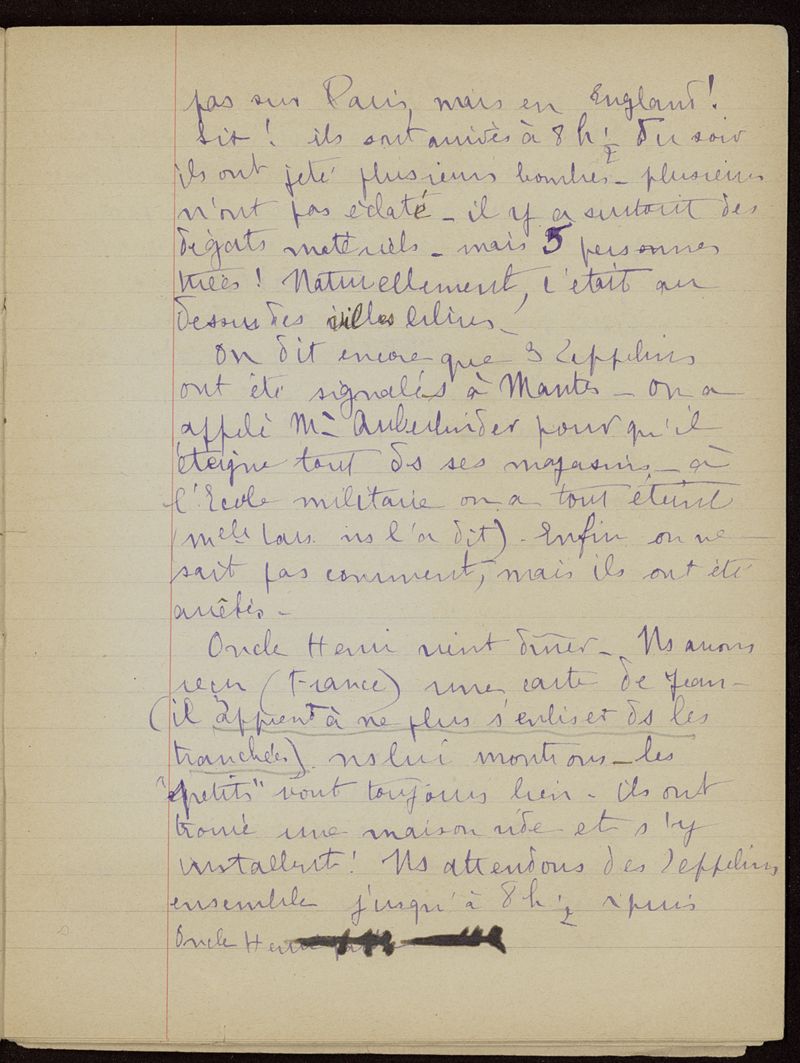 pas sur Paris, mais en England!
Sir! ils sont arrivés à 8 h 1/2 du soir
ils ont jeté plusieurs bombes – plusieurs
n'ont pas éclaté – il y a surtout des
dégâts matériels – mais 5 personnes
tuées! Naturellement, c'était au
dessus des villes libres –
On dit encore que 3 Zeppelins
ont été signalés à Mantes – On a
appelé Mr pour qu'il
éteigne tout ds ses magasins – à
l'Ecole militaire on a tout éteint
(Melle ns l'a dit). Enfin on ne
sait pas comment, mais ils ont été
arrêtés –
Oncle Henri vient dîner – Ns avons
reçu (France) une carte de Jean –
(il apprend à ne plus s'enliser ds les
tranchées) ns lui montrons – les
"petits" vont toujours bien – ils ont
trouvé une maison vide et s'y
installent! Ns attendons des Zeppelins
ensemble jusqu'à 8 h 1/2 puis
Oncle Henri